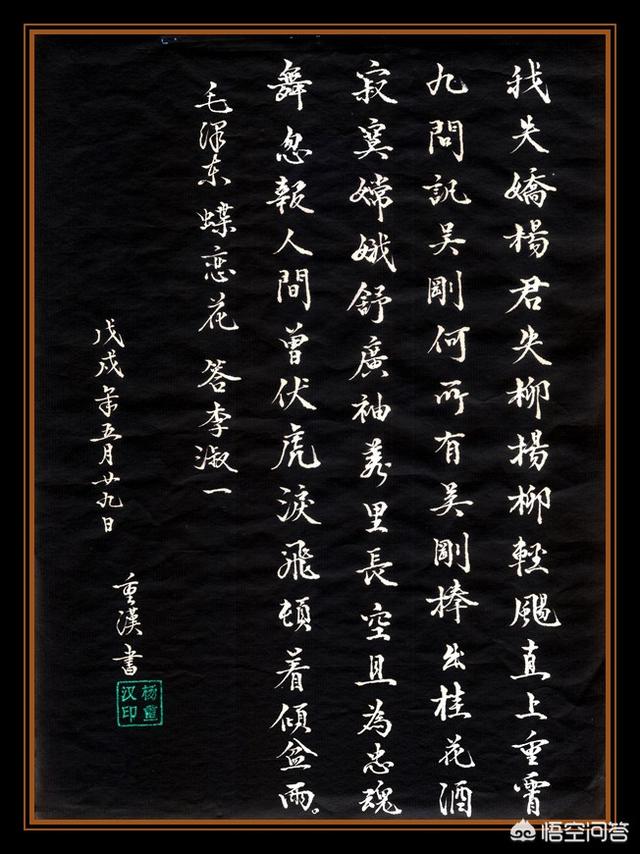 我失嬌楊君失柳揚柳輕颺直上重霄
九問訊吳剛何所有吳剛捧出桂花酒
寂寞嫦娥舒廣袖萬里長空且為忠魂
舞忽報人間曾伏虎淚飛頓着傾盆雨。
毛澤东蝶恋花 答李淑一
戊戌年五月廿九日
重漢書
杨重
汉印
悟空问答